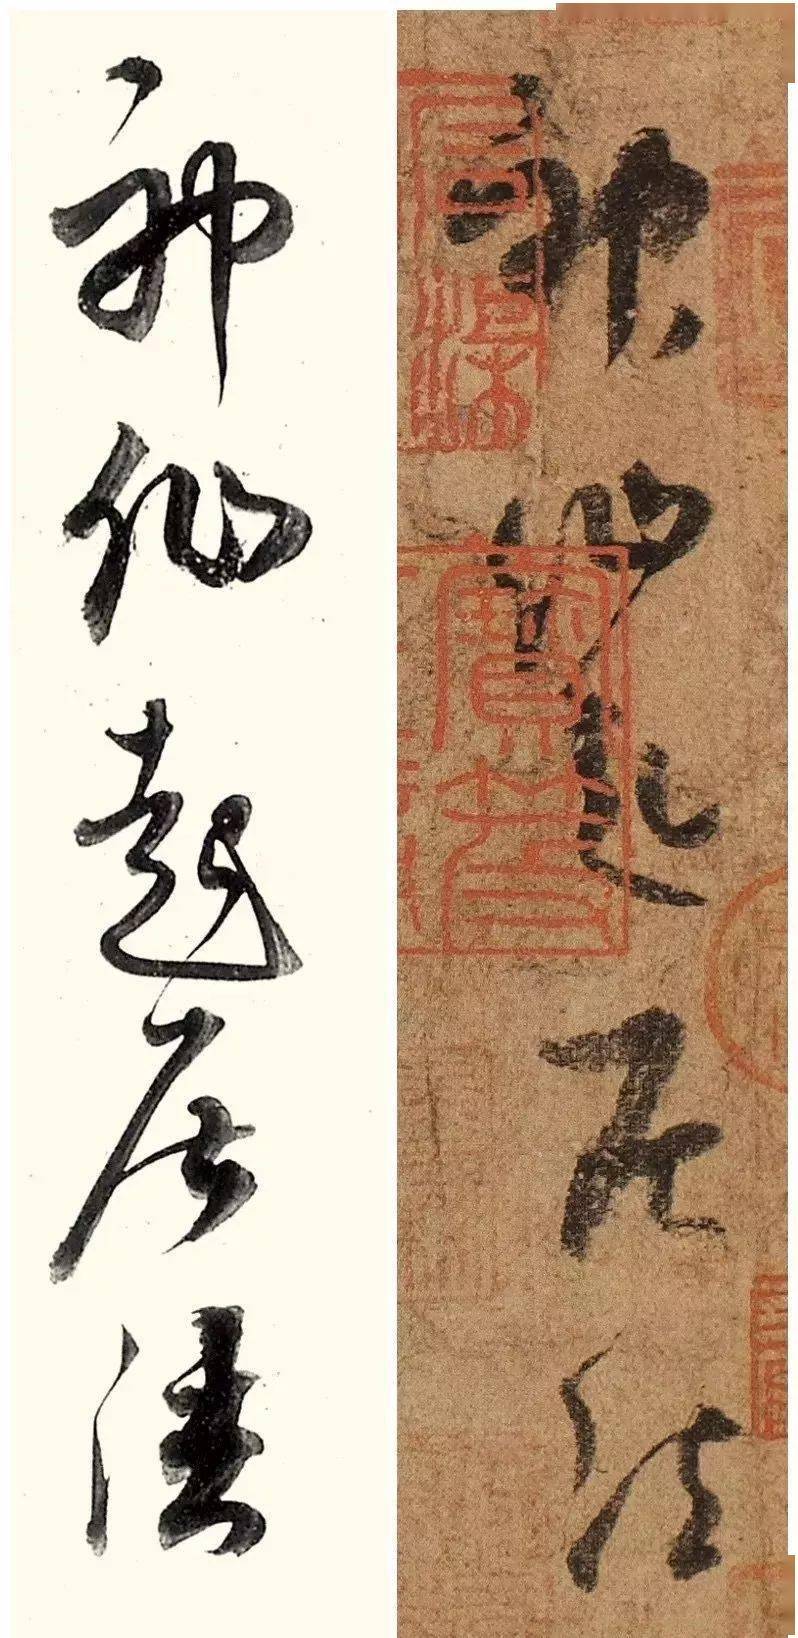 神仙起居法
神仙起居法